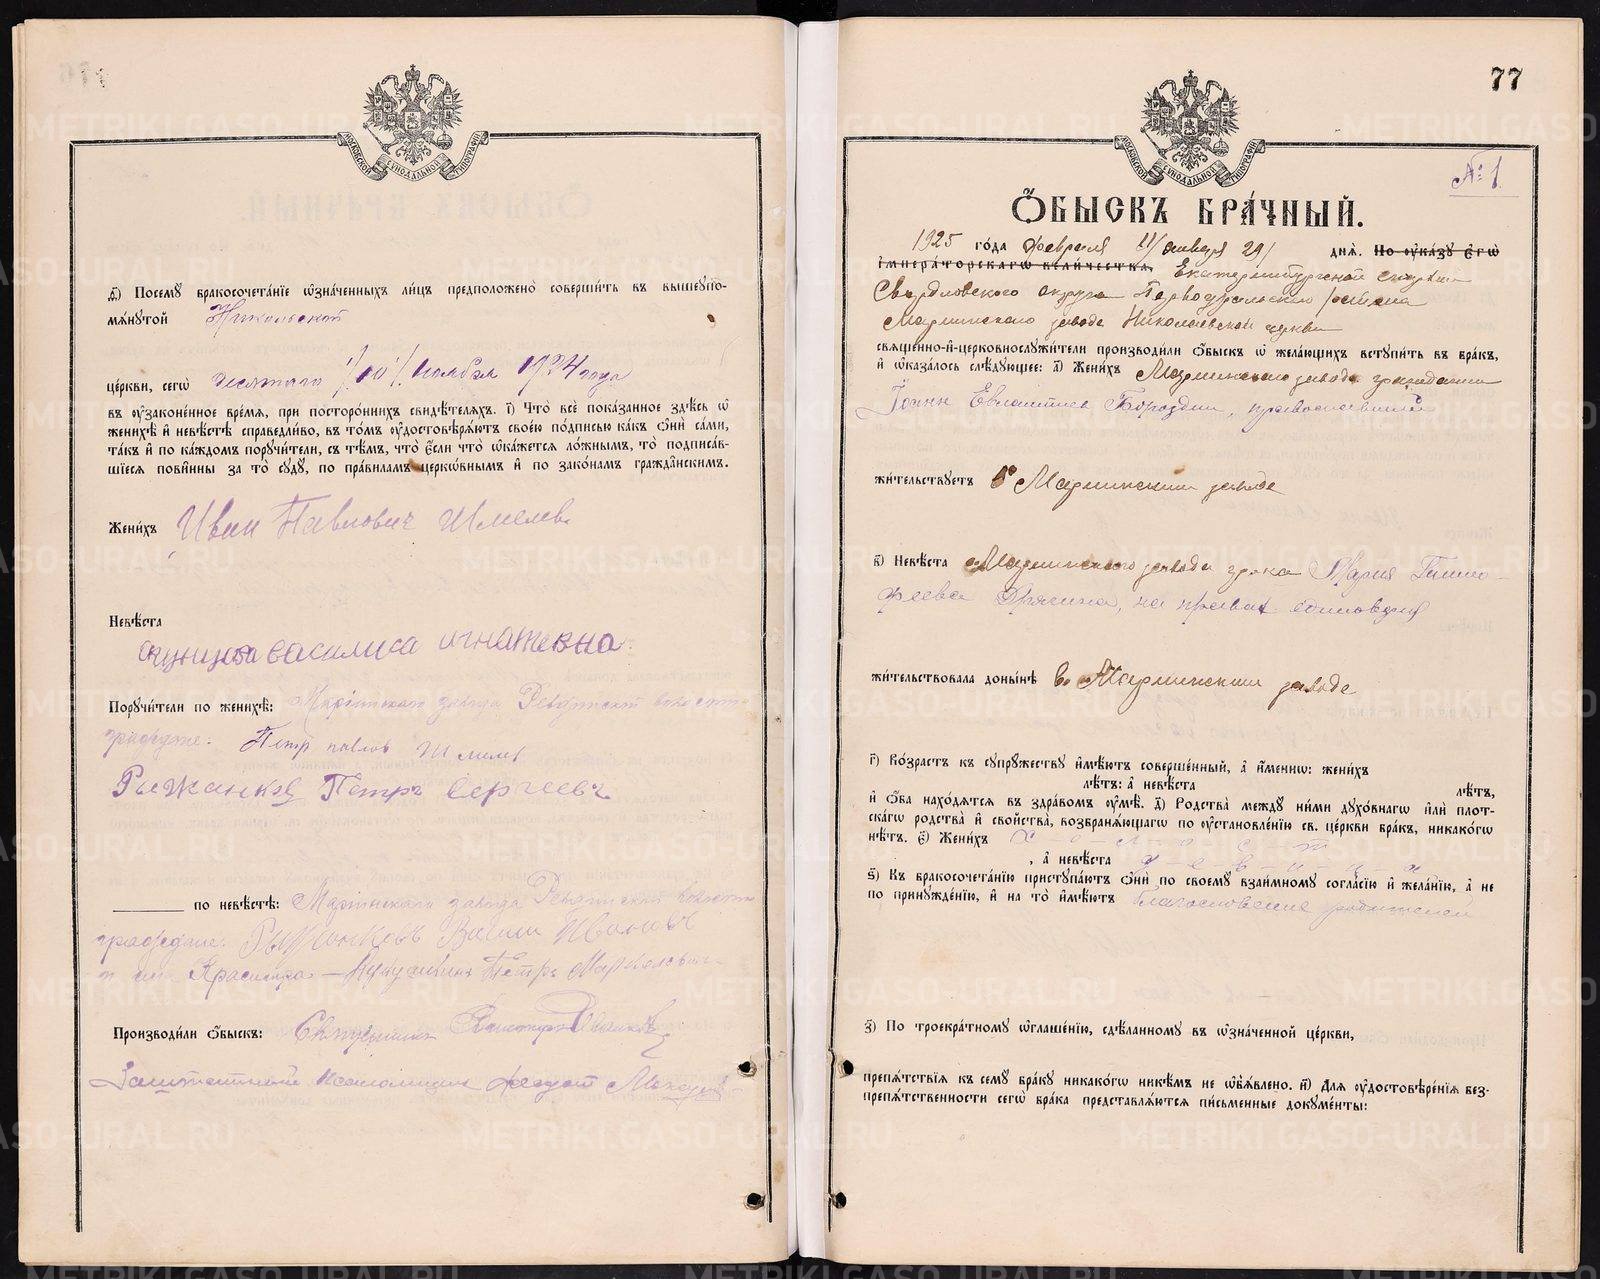 МОСКОВСКОЙ СѴНОДАЛЬНОЙ ТИПОГРАФІИ
д҃) Посемꙋ бракосочета́нїе ѡ҆зна́ченныхъ ли́цъ предположено̀ соверши́ть въ вышеꙋпо-
мѧ́нꙋтой Никольской
це́ркви, сегѡ̀ десятаго /10/ Ноября 1924 года
въ ᲂу҆зако́ненное вре́мѧ, при посторо́ннихъ свидѣ́телѧхъ. і҃) Что̀ всѐ пока́занное здѣ́сь ѡ҆
женихѣ̀ и҆ невѣ́стѣ справедли́во, въ то́мъ ᲂу҆достовѣрѧ́ютъ свое́ю по́дписью ка́къ ѻ҆нѝ са́ми,
та́къ и҆ по ка́ждомъ порꙋчи́тели, съ тѣ́мъ, что̀ є҆́сли что̀ ѡ҆ка́жетсѧ ло́жнымъ, то̀ подписа́в-
шїесѧ пови́нны за то̀ сꙋдꙋ̀, по пра́виламъ церко́внымъ и҆ по зако́намъ гражда́нскимъ.
Жени́хъ Иван Павлович Шмелевъ
Невѣ́ста
василиса игнатевна
Порꙋчи́тели по женихѣ̀: Маріинскаго завода Ревдинской волости
граждане: Петр павлов
Рыжанков Петръ Сергеевъ
по невѣ́стѣ: Маріинскаго завода Ревдинской волости
граждане: Рыжанковъ Василий Ивановъ
Петръ
Производи́ли ѻ҆́быскъ: Священникъ
псаломщикъ
77
МОСКОВСКОЙ СѴНОДАЛЬНОЙ ТИПОГРАФІИ
№ 1
Ѻ҆́БЫСКЪ БРА́ЧНЫЙ.
1925 го́да февраля 11/января 29/ днѧ̀. По ᲂу҆ка́зꙋ є҆гѡ̀
і҆мпера́торскагѡ вели́чества, Екатеринбургской епархии
Свердловского округа Первоуральского района
Мариинского завода Николаевской церкви
свѧще́нно-и҆-церковнослꙋжи́тели производи́ли ѻ҆́быскъ ѡ҆ жела́ющихъ встꙋпи́ть въ бра́къ,
и҆ ѡ҆каза́лось слѣ́дꙋющее: а҃) Жени́хъ Мариинского завода гражданин
Іоанн Бороздин, православный
жи́тельствꙋетъ в Мариинском заводе
в҃) Невѣ́ста Мариинского завода гр-ка Мария Тимо-
феева
жи́тельствовала доны́нѣ в Мариинском заводе
г҃) Во́зрастъ къ сꙋпрꙋ́жествꙋ и҆мѣ́ютъ соверше́нный, а҆ и҆́менно: жени́хъ
лѣ́тъ: а҆ невѣ́ста лѣ́тъ,
и҆ ѻ҆́ба нахо́дѧтсѧ въ здра́вомъ ᲂу҆мѣ̀. д҃) Родства̀ междꙋ̀ ни́ми дꙋхо́внагѡ и҆лѝ плот-
ска́гѡ родства̀ и҆ сво́йства, возбранѧ́ющагѡ по ᲂу҆становле́нїю св. це́ркви бра́къ, никако́гѡ
нѣ́тъ. є҃) Жени́хъ х-о-л-о-с-т
, а҆ невѣ́ста д-е-в-и-ц-а
ѕ҃) Къ бракосочета́нїю пристꙋпа́ютъ ѻ҆нѝ по своемꙋ̀ взаи́мномꙋ согла́сїю и҆ жела́нїю, а҆ не
по принꙋжде́нїю, и҆ на то̀ и҆мѣ́ютъ благословение родителей
з҃) По троекра́тномꙋ ѡ҆глаше́нїю, сдѣ́ланномꙋ въ ѡ҆зна́ченной це́ркви,
препѧ́тствїѧ къ семꙋ̀ бра́кꙋ никако́гѡ никѣ́мъ не ѡ҆б̾ѧ́влено. и҃) Длѧ ᲂу҆достовѣре́нїѧ без-
препѧ́тственности сегѡ̀ бра́ка представлѧ́ютсѧ пи́сьменные докꙋме́нты:
METRIKI.GASO-URAL.RU